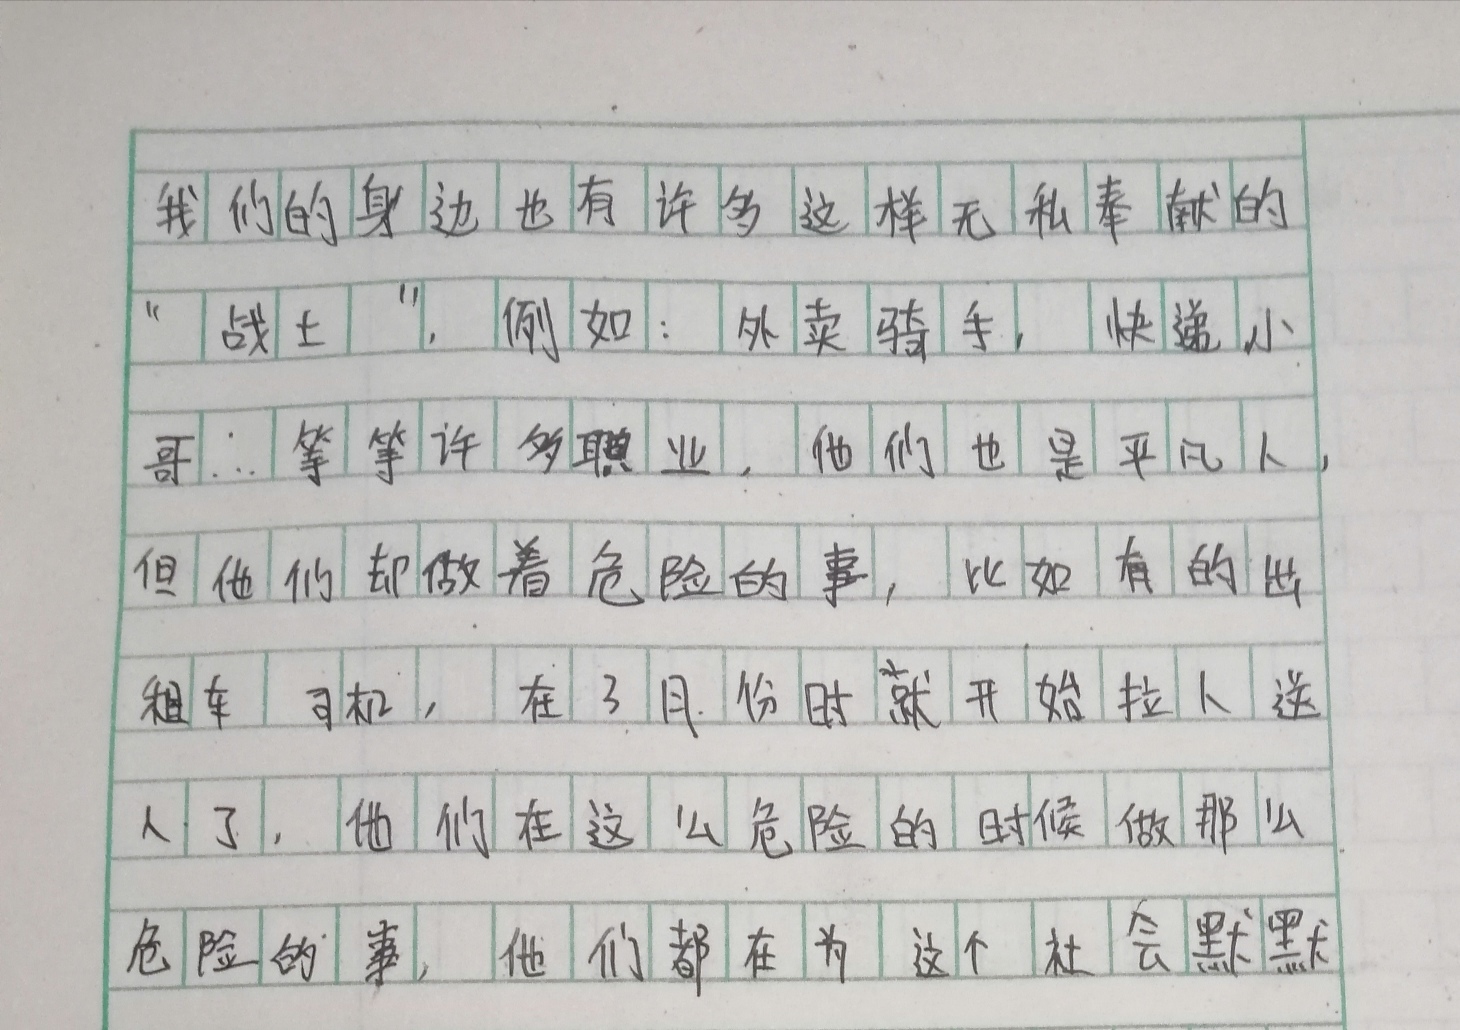 我们的身边也有许多这样无私奉献的
“战士”，例如：外卖骑手，快递小
哥...等等许多职业，他们也是平凡人，
但他们却做着危险的事，比如有的出
租车司机，在3月份时就开始拉人送
人了，他们在这么危险的时候做那么
危险的事，他们都在为这个社会默默